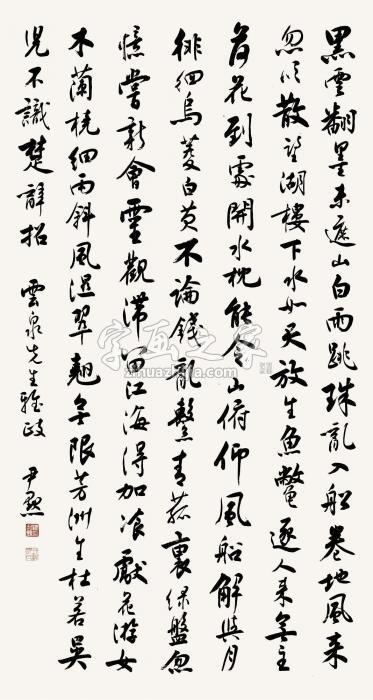 黑雲翻墨未遮山白雨跳珠亂入船卷地風來
忽吹散望湖樓下水如天放生魚鱉逐人來無主
荷花到處開水枕能令山俯仰風船解與月
徘徊烏菱白芡不論錢亂繫青菰裏綠盤忽
憶嘗新會靈觀滯留江海得加飡獻花游女
木蘭橈細雨斜風濕翠翹無限芳洲生杜若吳
兒不識楚辭招 雲泉先生雅政 尹默
字画之家